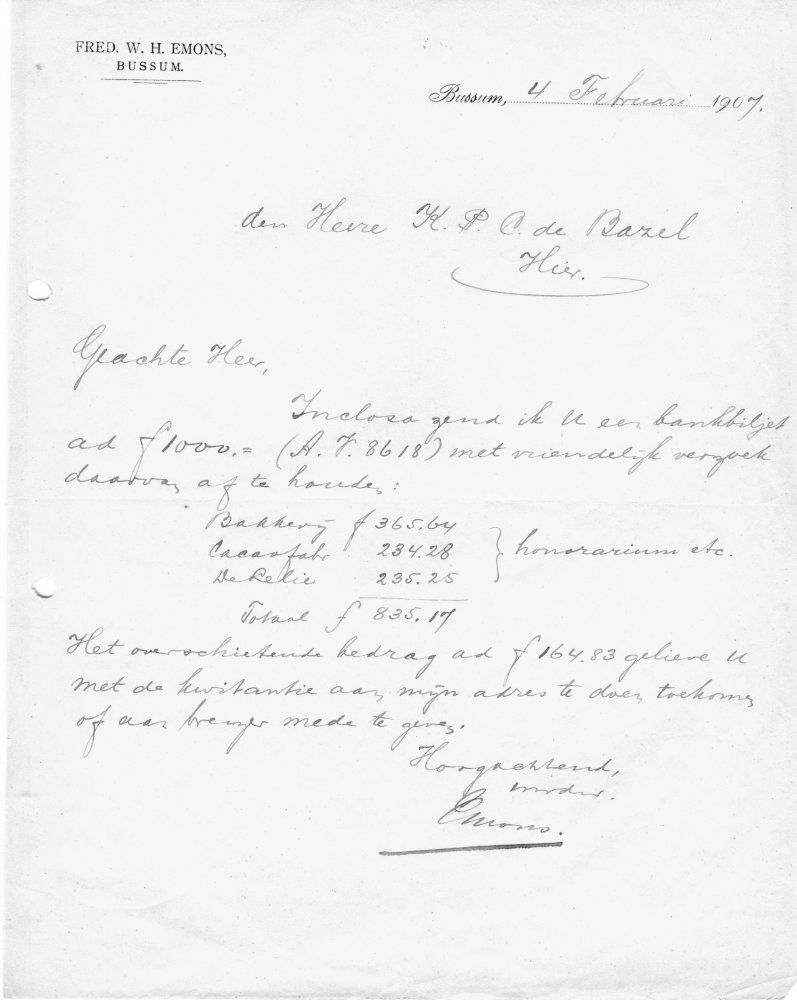 FRED. W. H. EMONS,
BUSSUM.
Bussum, 4 Februari 1907.
den Heere K. P. C. de Bazel
Hier.
Geachte Heer,
Inclosa zend ik U een bankbiljet
ad f 1000.= (A. F. 8618) met vriendelijk verzoek
daarvan af te houden:
Bakkerij f 365.64
Cacaofabr 234.28 honorarium etc.
De Lelie 235.25
Totaal f 835.17
Het overschietende bedrag ad f 164.83 gelieve U
met de kwitantie aan mijn adres te doen toekomen
of aan brenger mede te geven.
Hoogachtend,
Emons.